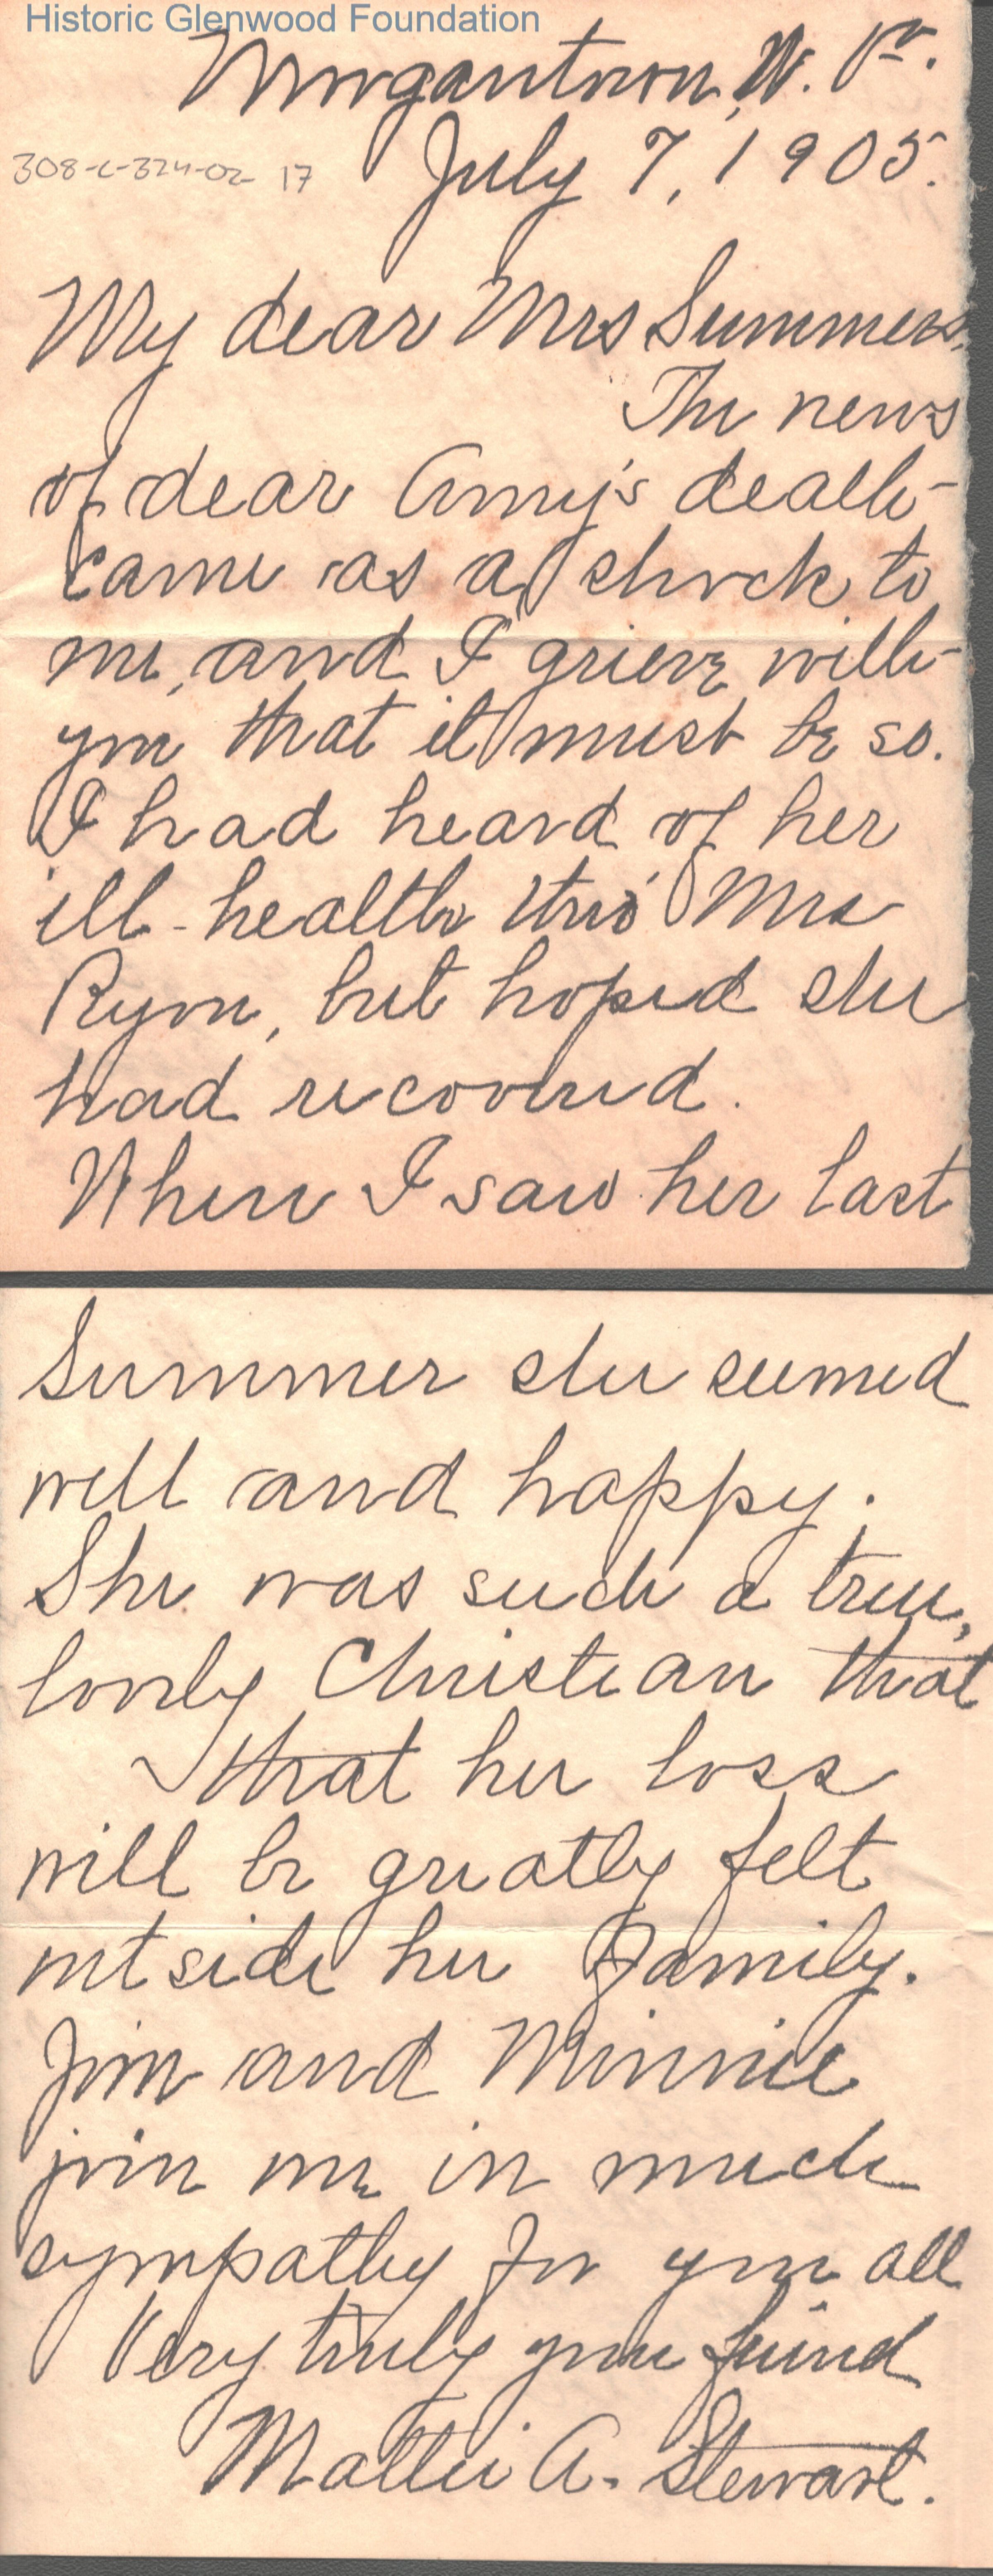 Historic Glenwood Foundation
Morgantown, W. Va.
308-C-324-02 17
July 7, 1905.
My dear Mrs Summers,
The news
of dear Amy's death
came as a shock to
me, and I grieve with
you that it must be so.
I had heard of her
ill-health thro' Mrs
Ryon, but hoped she
had recovered.
When I saw her last
Summer she seemed
well and happy.
She was such a true,
lovely Christian that
that her loss
will be greatly felt
outside her family.
Jim and Minnie
join me in much
sympathy for you all
Very truly your friend
Mattie A. Stewart.